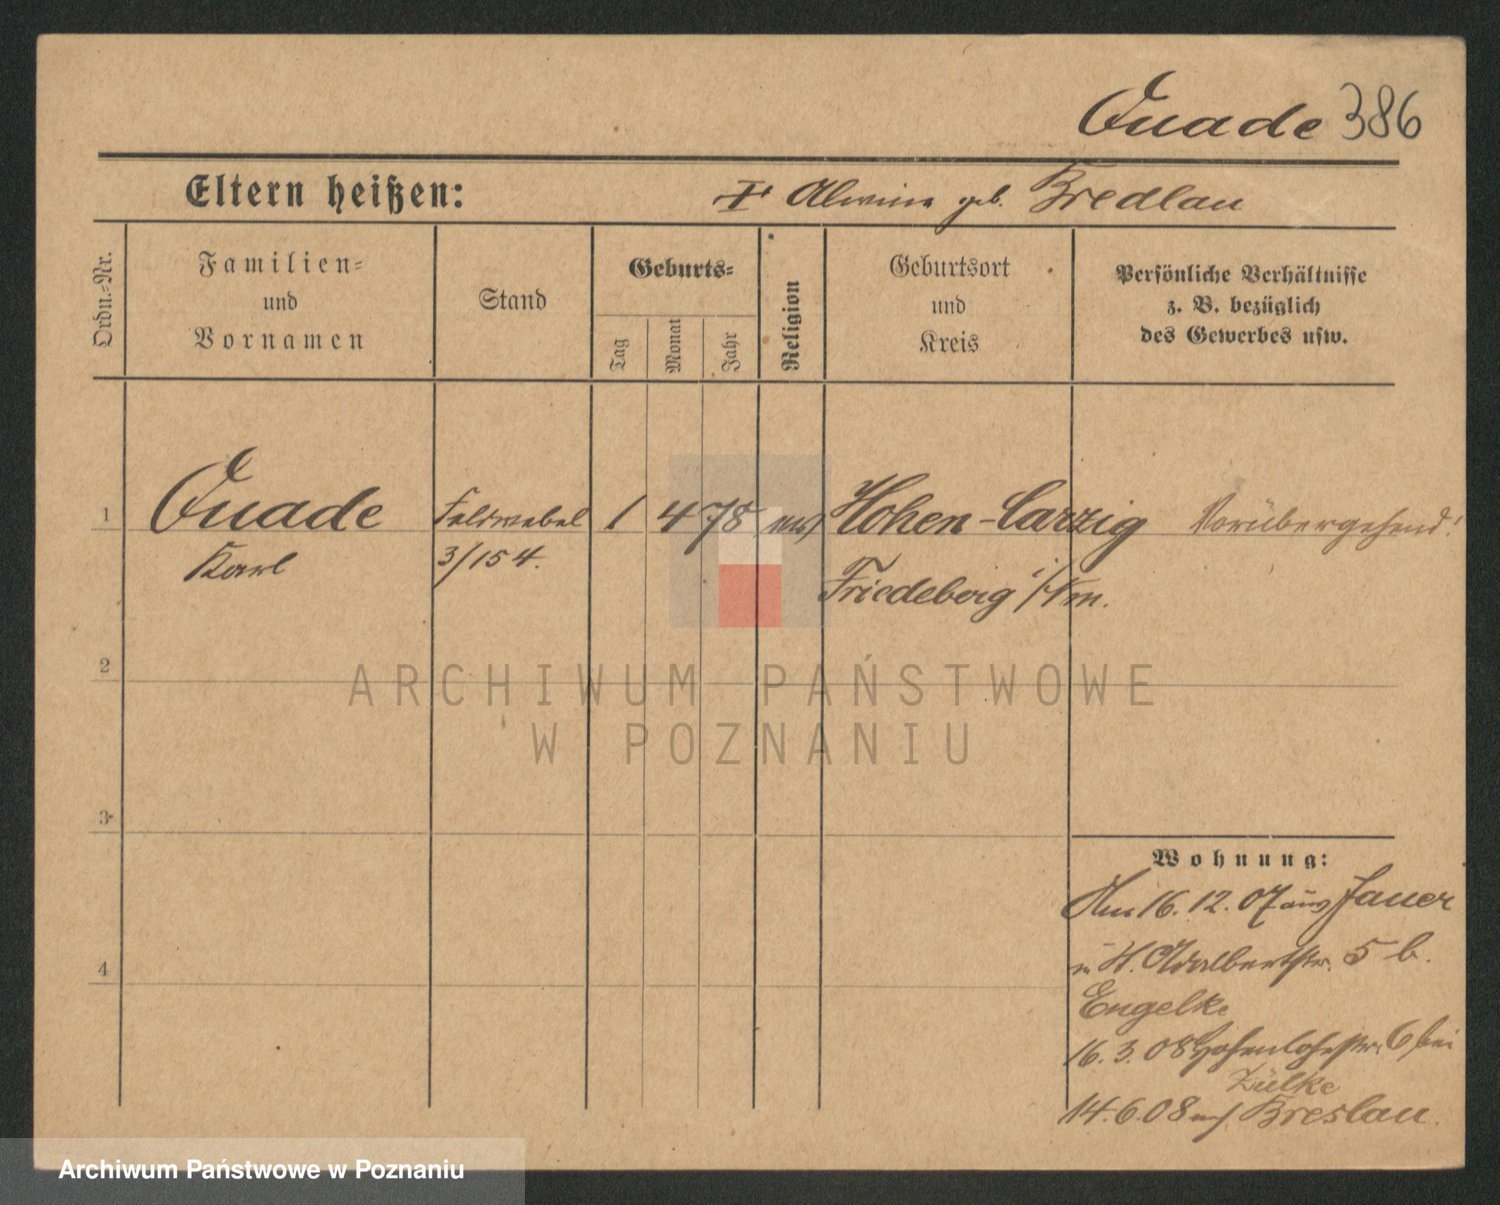 Quade 386
Eltern heißen: Alwine geb. Bredlau
Ordn.-Nr.
Familien-
und
Vornamen
Stand
Geburts-
Tag
Monat
Jahr
Religion
Geburtsort
und
Kreis
Persönliche Verhältnisse
z. B. bezüglich
des Gewerbes usw.
1 Quade Feldwebel 1 4 78 Hohen-Carzig Vorübergehend!
Karl 3/154. Friedeberg i/Nm.
2
ARCHIWUM PAŃSTWOWE
W POZNANIU
3
4
Wohnung:
16. 12. 07 aus Jauer
Adalbertstr. 5 b.
Engelke
16. 3. 08 Hohenlohestr. 6 bei
Zülke
14. 6. 08 Breslau.
Archiwum Państwowe w Poznaniu